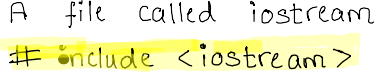 A file called iostream
# include <iostream>